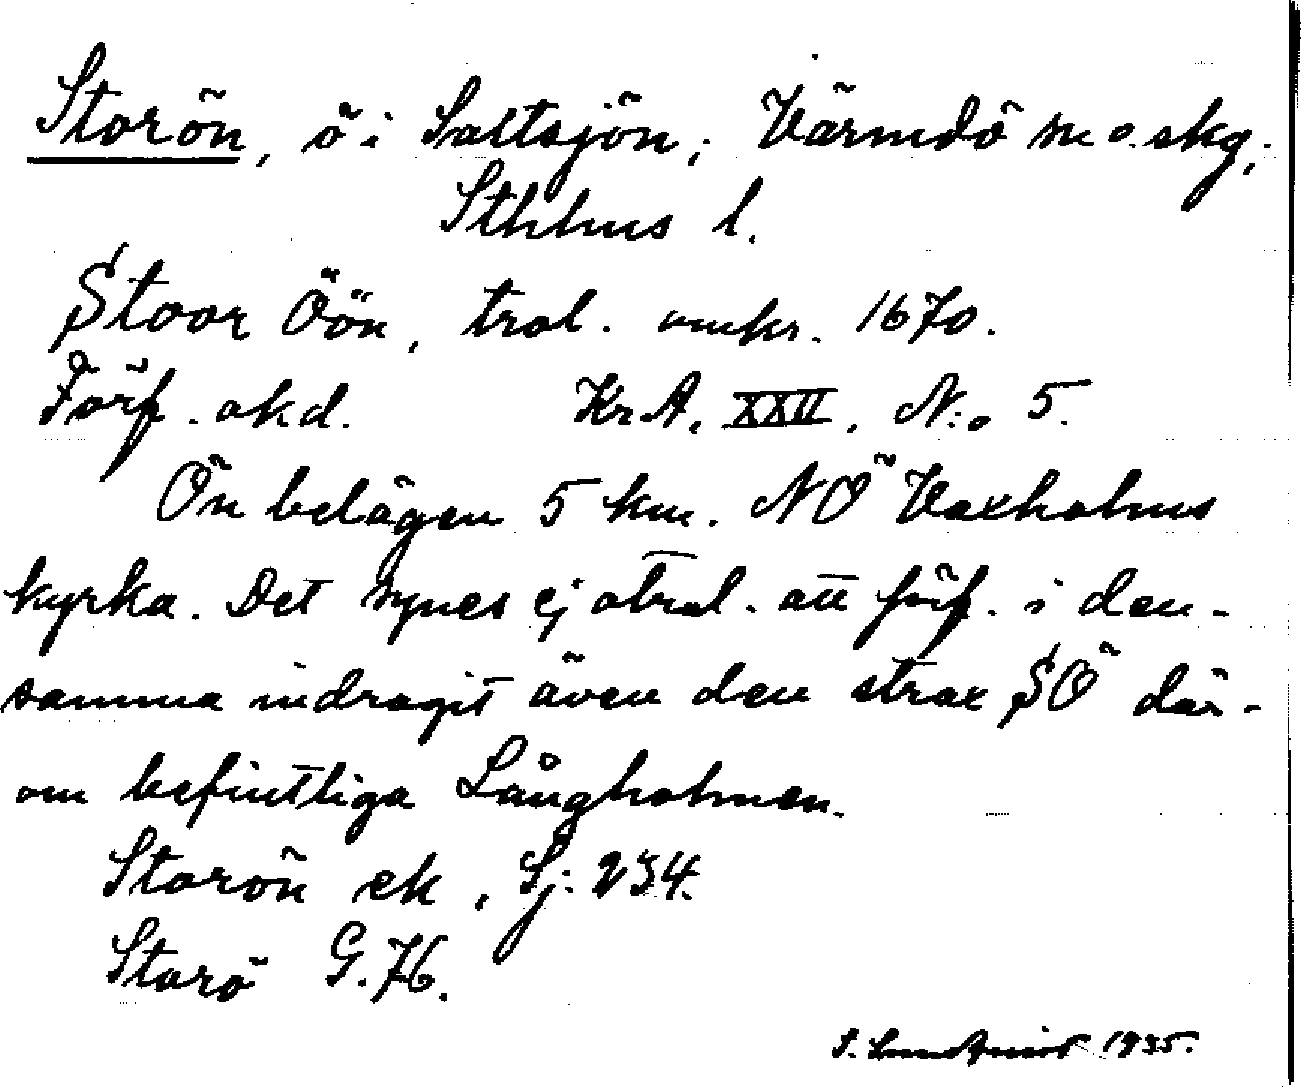 Storön, ö i Saltsjön, Värmdö sn o. skg,
Sthlms l.
Stoor Öön, trol. omkr. 1670.
Förf. okd. Kr.A. XXII. N:o 5.
Ön belägen 5 km. NÖ Vaxholms
kyrka. Det synes ej otrol. att förf. i den-
samma indragit även den strax SÖ där-
om befintliga Långholmen.
Storön ek, Sj. 234.
Storö G.76.
S. Lundqvist 1935.